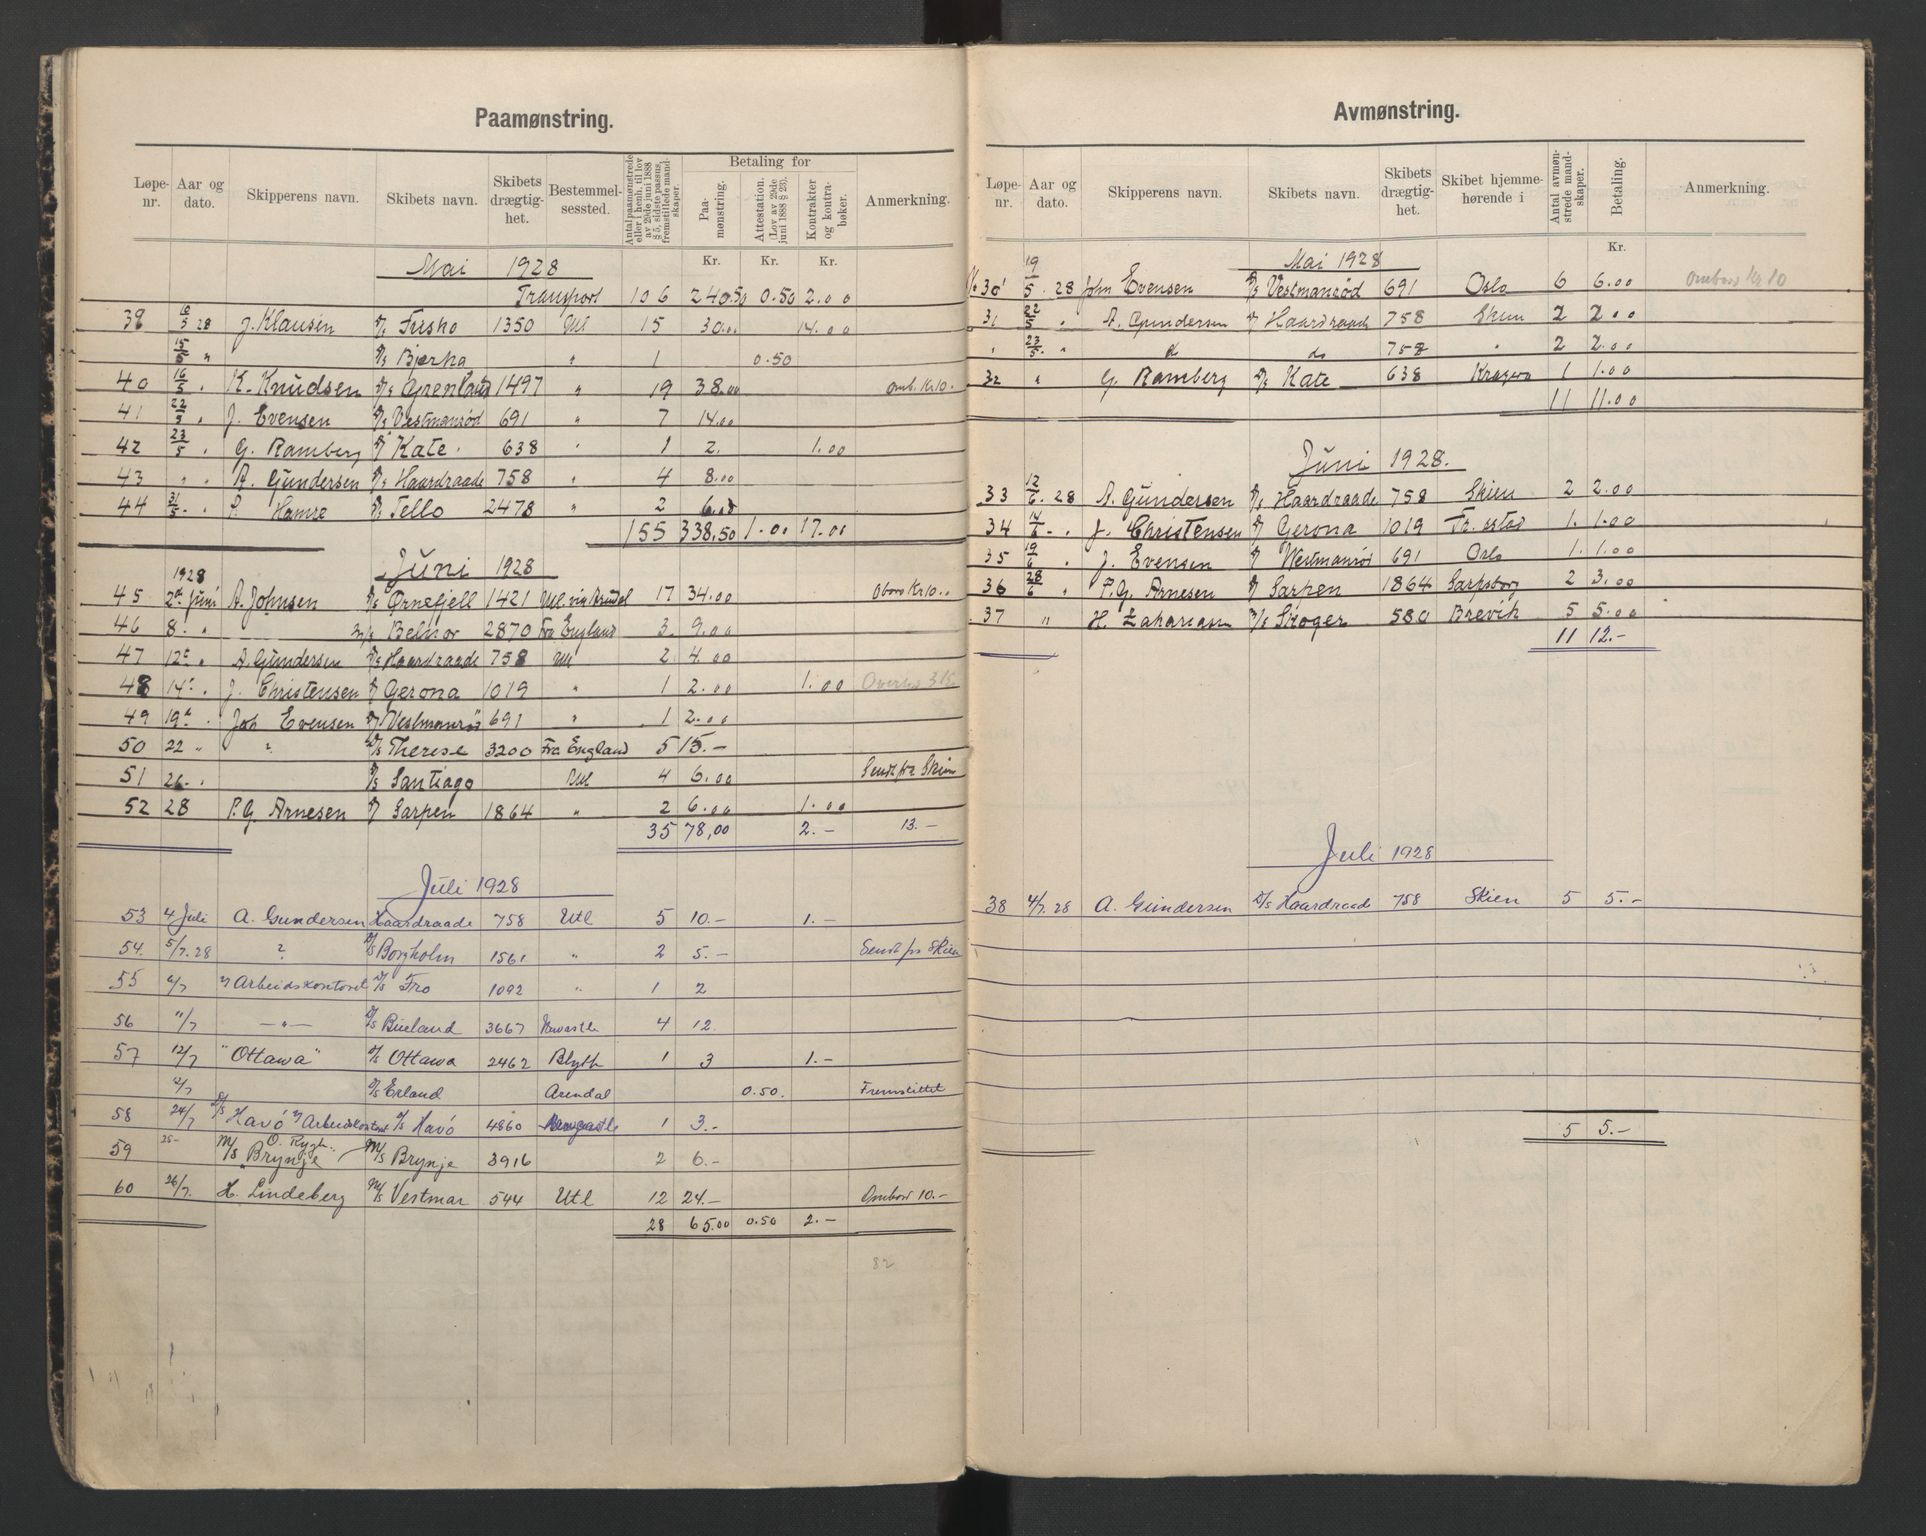 Paamønstring.
Løpe-nr. Aar og dato. Skipperens navn. Skibets navn. Skibets drægtig-het. Bestemmel-sessted. Antal paamønstrede eller i henh. til lov av 29de juni 1888 § 5, sidste passus, fremstillede mand-skaper. Betaling for Paa-mønstring. Attestation. (Lov av 29de juni 1888 § 23). Kontrakter og kontra-bøker. Anmerkning.
Kr. Kr. Kr.
Mai 1928
Transport 106 240.50 0.50 2.00
38 16/5 28 J. Klausen D/s Fusko 1350 Utl 15 30.00 14.00
15/5 " D/s Bjerka " 1 0.50
40 16/5 " K. Knudsen D/s Grenland 1497 " 19 38.00 omb. Kr 10.
41 22/5 " J. Evensen D/s Vestmanrød 691 " 7 14.00
42 23/5 " G. Ramberg D/ Kate 638 " 1 2. 1.00
43 " " A. Gundersen D/s Haardraade 758 " 4 8.00
44 31/5 - " P. Hamre D/s Tello 2478 " 2 6.00
155 338,50 1.00 17.00
Juni 1928
1928
45 2de Juni A. Johnsen D/s Ørnefjell 1421 Utl. via Arendal 17 34.00 Obord Kr 10..
46 8. " M/s Belnor 2870 Fra England 3 9.00
47 12te " A. Gundersen D/s Haardraade 758 Utl 2 4.00
48 14te . J. Christensen D/ Gerona 1019 " 1 2.00 1.00
49 19de . Joh Evensen D/ Vestmanrø" 691 " 1 2.00
50 22 " " D/s Therese 3200 Fra England 5 15.-
51 26 - . D/s Santiago Utl 4 6.00 Sendt fra Skien
52 28 P. G. Arnesen D/ Sarpen 1864 " 2 6.00 1.00
35 78,00 2.- 13.-
Juli 1928
53 4 Juli A. Gundersen Haardraade 758 Utl 5 10.- 1.-
54. 5/7.28 ? D/s Borgholm 1561 " 2 5.- Sendt fra Skien
55 6/7 v/ Arbeidskontoret D/s Fro 1092 " 1 2
56 11/7 -"- D/s Bueland 3667 Newcastle 4 12.
57 12/7 "Ottawa" D/s Ottawa 2462 Blyth 1 3 1.-
12/7 D/s Erland Arendal 0.50. Fremstillet
58 24/7 D/s Havø v/ Arbeidskontoret D/s Havø 4860 Newcastle 1 3.-
59 25- M/s "Brynje O. Rygh. M/s Brynje 3916 2 6.-
60 26/7. H. Lindeberg M/s Vestmar 544 Utl 12 24.- Ombord 10.-
28 65.00 0.50 2.-
82
Avmønstring.
Løpe-nr. Aar og dato. Skipperens navn. Skibets navn. Skibets drægtig-het. Skibet hjemme-hørende i Antal avmøn-strede mand-skaper. Betaling. Anmerkning.
Kr.
Mai 1928
30 19/5 . 28 John Evensen D/s Vestmanrød 691 Oslo 6 6.00 ombord Kr 10
31 22/5 " A. Gundersen D/ Haardraade 758 Skien 2 2.00
" 23/5. " do do 758 " 2 2.00
32 " G. Ramberg D/s Kate 638 Kragerø 1 1.00
11 11.00
Juni 1928.
33 12/6. 28 A. Gundersen D/s Haardraade 758 Skien 2 2.00
34 14/6 - . J. Christensen D/ Gerona 1019 Fr. stad 1. 1.00
35 19/6 " J. Evensen D/ Westmanrød 691 Oslo 1. 1.00
36 28/6 . P. G. Arnesen D/ Sarpen 1864 Sarpsborg 2 3.00
37 " H. Zakariassen M/s Skoger 580 Brevik 5 5.00
11 12.-
Juli 1928
38 4/7.28 A. Gundersen D/s Haardraade 758 Skien 5 5.-
5 5.-